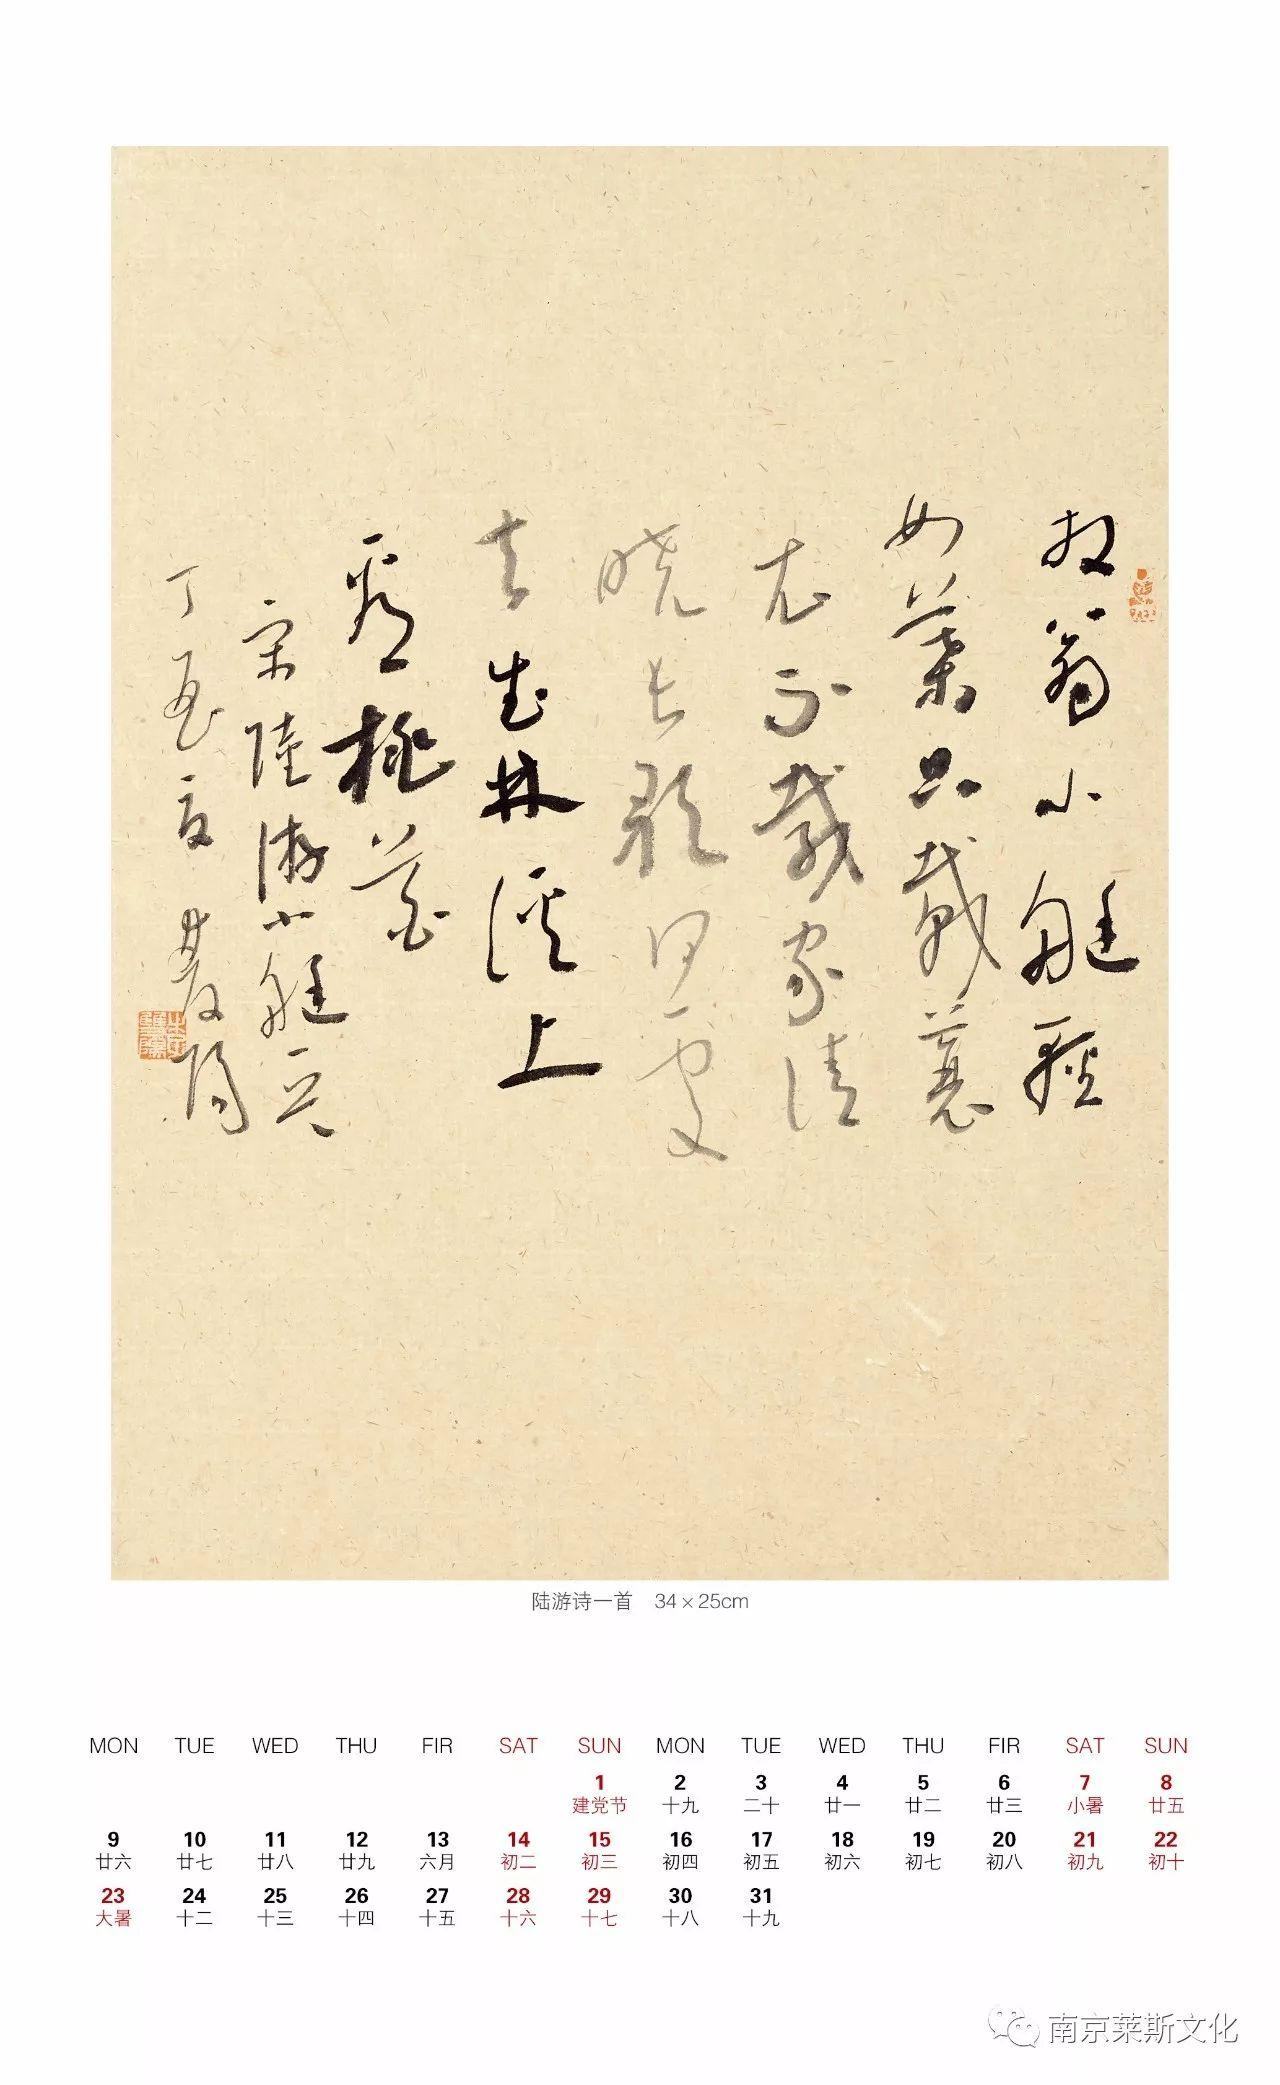 放翁小艇輕
如葉只載蓑
衣不載家清
曉長歌何處
去武林溪上
看桃花
宋陸游小艇
丁酉夏
陆游诗一首 34×25cm
MON TUE WED THU FIR SAT SUN MON TUE WED THU FIR SAT SUN
1 2 3 4 5 6 7 8
建党节 十九 二十 廿一 廿二 廿三 小暑 廿五
9 10 11 12 13 14 15 16 17 18 19 20 21 22
廿六 廿七 廿八 廿九 六月 初二 初三 初四 初五 初六 初七 初八 初九 初十
23 24 25 26 27 28 29 30 31
大暑 十二 十三 十四 十五 十六 十七 十八 十九
南京莱斯文化